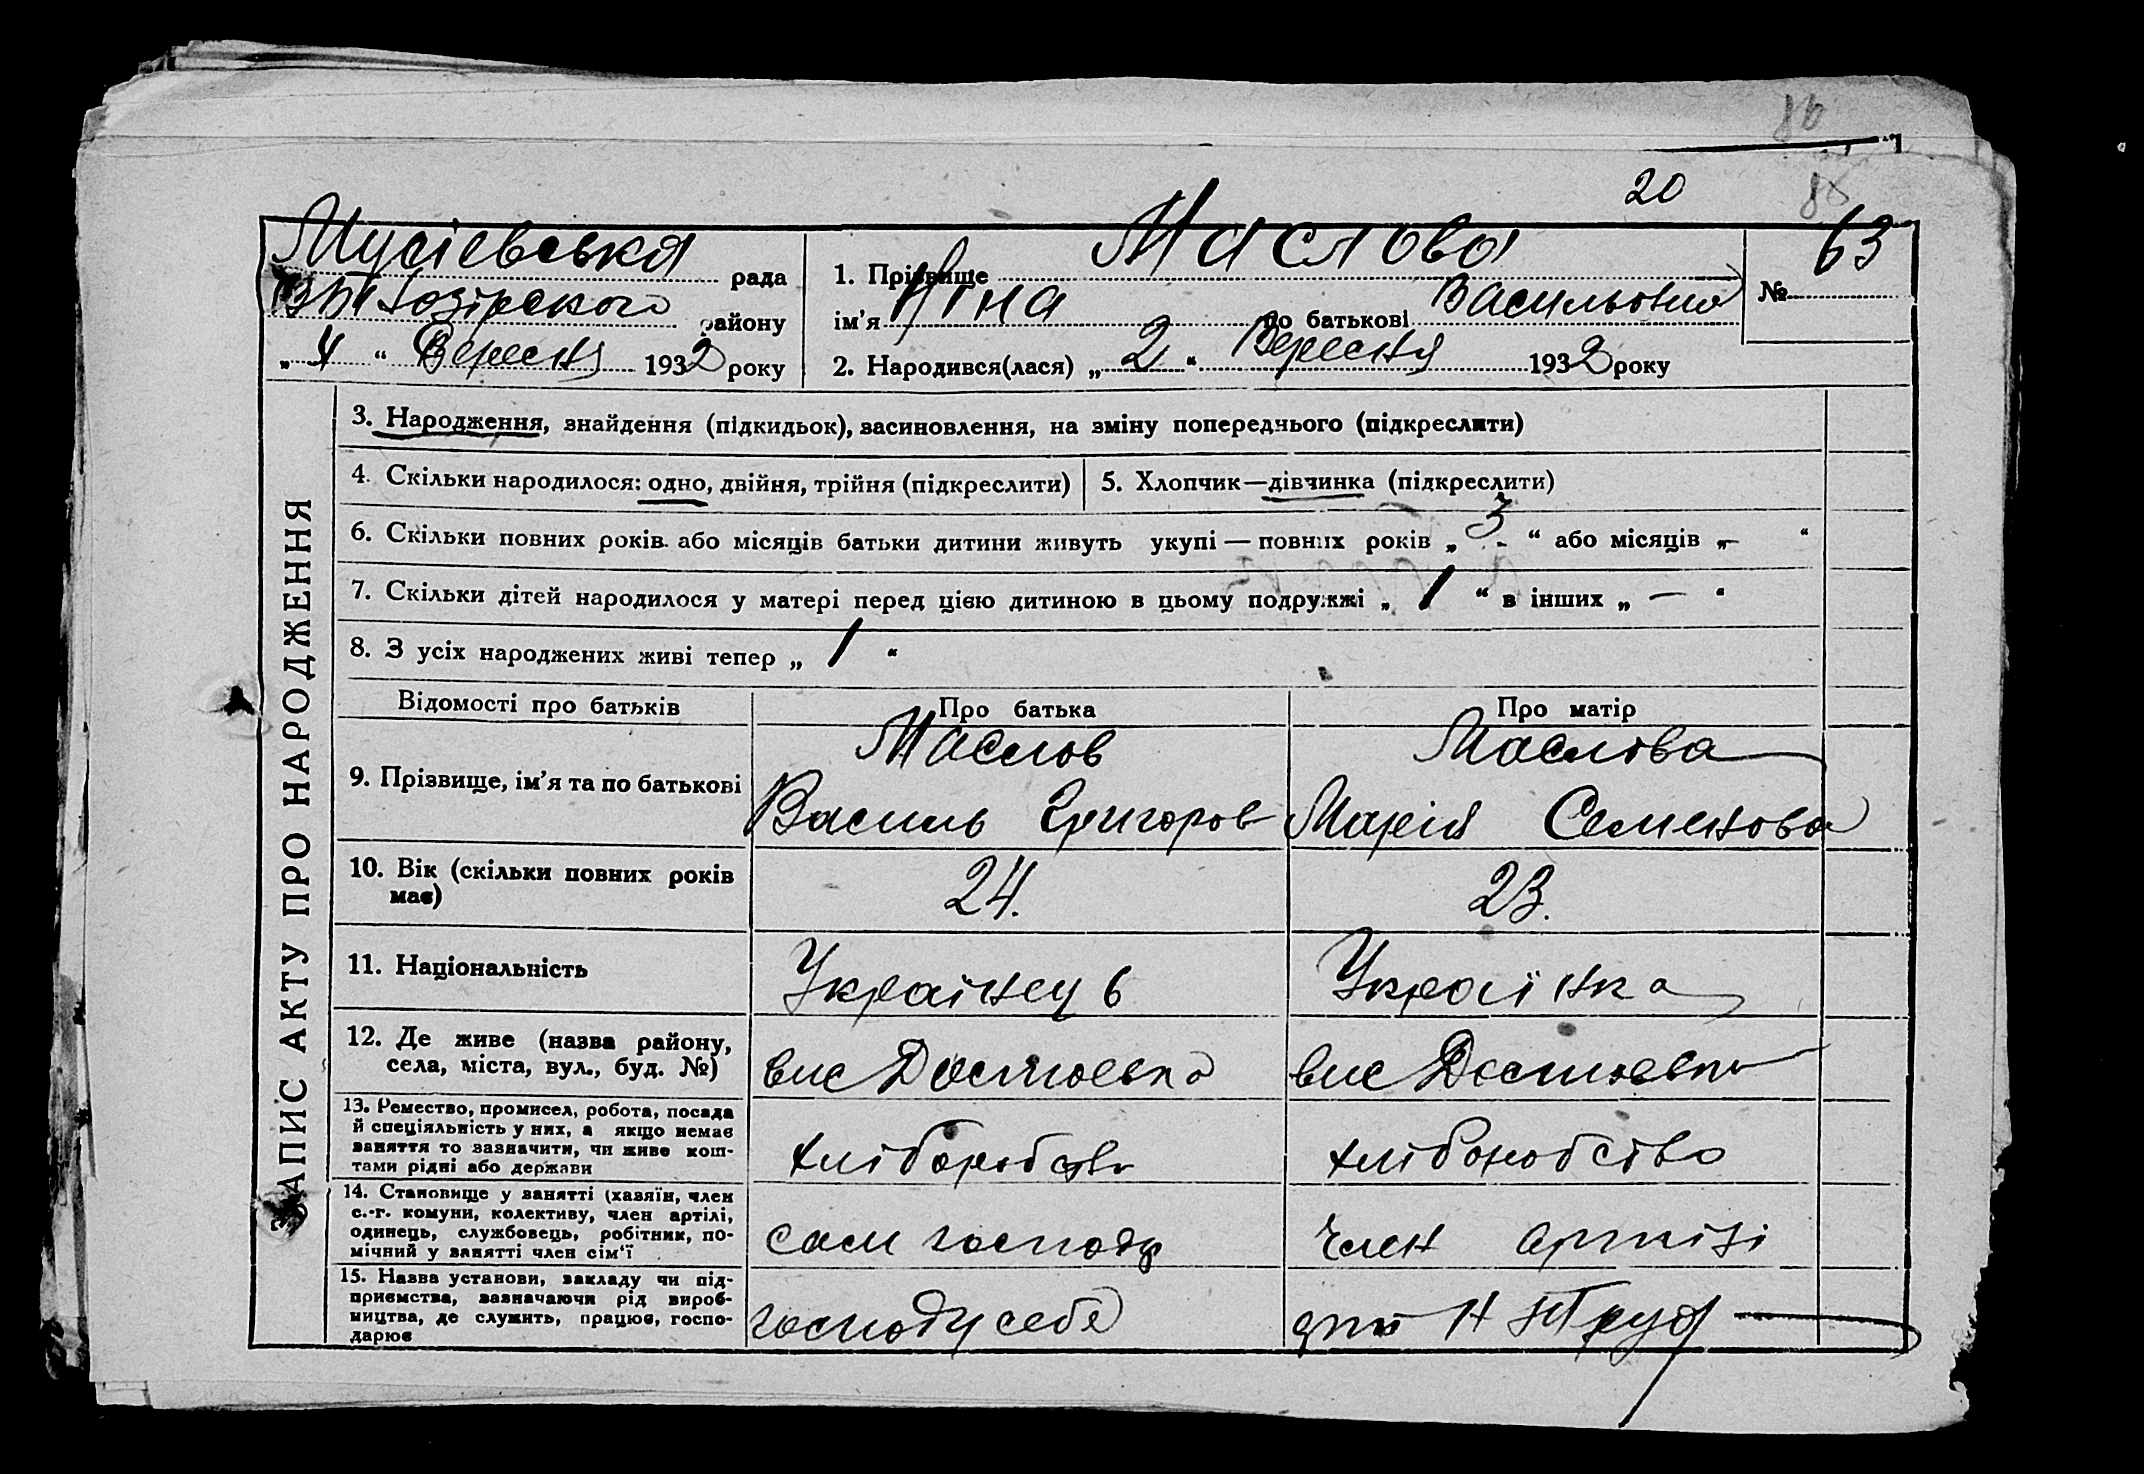 86
20
88
Мусіевська рада
района
„ 4 “ Вересня 1932 року
1. Прізвище Маслова
ім’я Ніна по батькові Васильовна
2. Народився(лася) „ 2 “ Вересня 1932 року
№ 63
ЗАПИС АКТУ ПРО НАРОДЖЕННЯ
3. Народження, знайдення (підкидьок), засиновлення, на зміну попереднього (підкреслити)
4. Скільки народилося: одно, двійня, трійня (підкреслити)
5. Хлопчик—дівчинка (підкреслити)
6. Скільки повних років або місяців батьки дитини живуть укупі — повних років „ 3 “ або місяців „ — “
7. Скільки дітей народилося у матері перед цією дитиною в цьому подружжі „ 1 “ в інших „ — “
8. З усіх народжених живі тепер „ 1 “
Відомості про батьків
Про батька
Про матір
9. Прізвище, ім’я та по батькові
Маслов
Василь Григоров
Маслова
Марія Семенова
10. Вік (скільки повних років
має)
24.
23.
11. Національність
Українець
Українка
12. Де живе (назва району,
села, міста, вул., буд. №)
вис Достоевка
вис Достоевка
13. Ремество, промисел, робота, посада
й спеціяльність у них, а якщо немає
заняття то зазначити, чи живе кош-
тами рідні або держави
хліборобство
хліборобство
14. Становище у занятті (хазяїн, член
с.-г. комуни, колективу, член артілі,
одинець, службовець, робітник, по-
мічний у занятті член сім’ї
сам господ
член артілі
15. Назва установи, закладу чи під-
приємства, зазначаючи рід вироб-
ництва, де служить, працює, госпо-
дарює
господ у себе
Труд